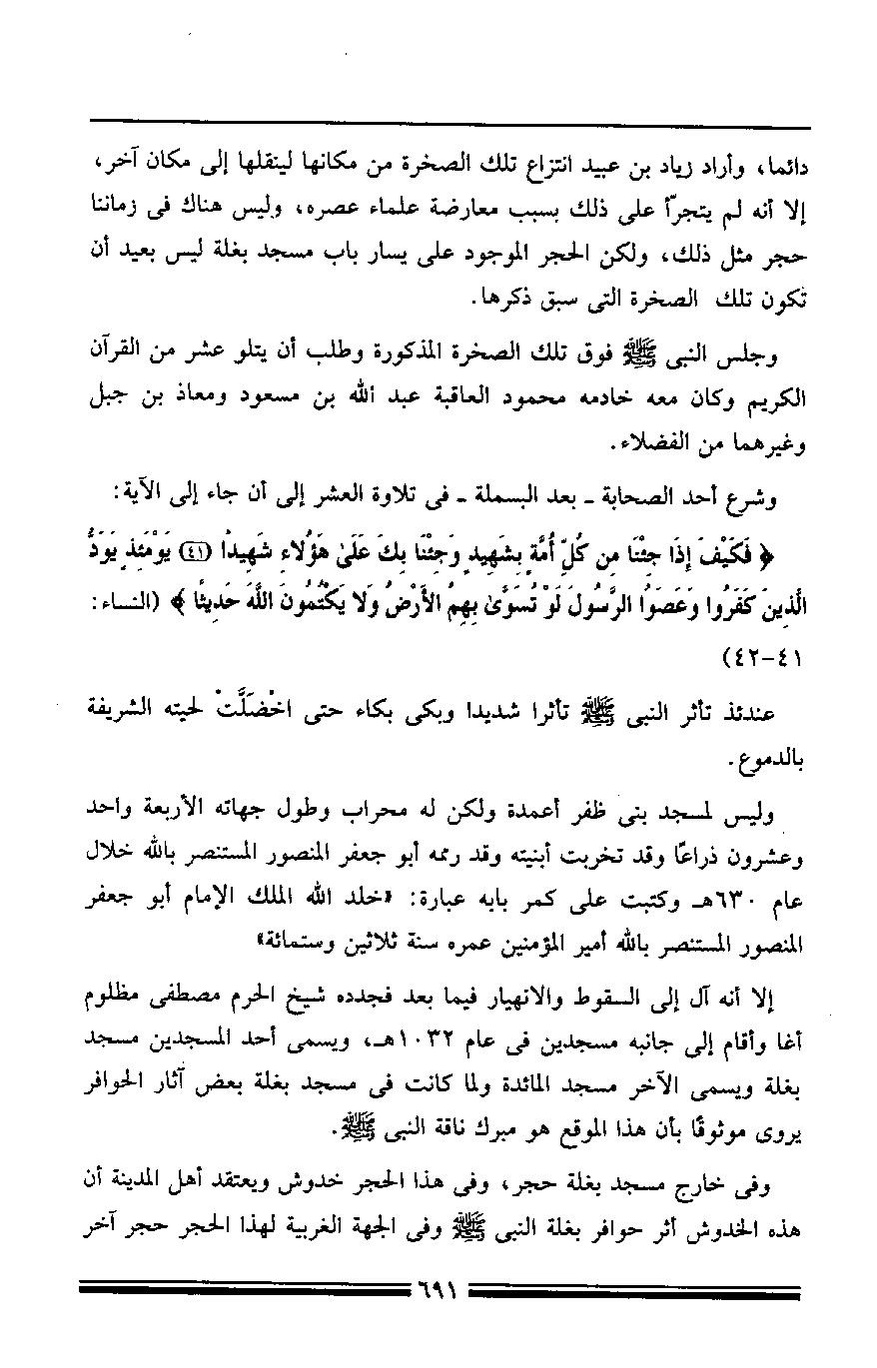 دائما، وأراد زياد بن عبيد انتزاع تلك الصخرة من مكانها لينقلها إلى مكان آخر،
إلا أنه لم يتجرأ على ذلك بسبب معارضة علماء عصره، وليس هناك فى زماننا
حجر مثل ذلك، ولكن الحجر الموجود على يسار باب مسجد بغلة ليس بعيد أن
تكون تلك الصخرة التى سبق ذكرها.
وجلس النبى ﷺ فوق تلك الصخرة المذكورة وطلب أن يتلو عشر من القرآن
الكريم وكان معه خادمه محمود العاقبة عبد الله بن مسعود ومعاذ بن جبل
وغيرهما من الفضلاء.
وشرع أحد الصحابة ـ بعد البسملة ـ فى تلاوة العشر إلى أن جاء إلى الآية:
﴿ فَكَيْفَ إِذَا جِئْنَا مِن كُلِّ أُمَّةٍ بِشَهِيدٍ وَجِئْنَا بِكَ عَلَىٰ هَؤُلاءِ شَهِيدًا (٤١) يَوْمَئِذٍ يَوَدُّ
الَّذِينَ كَفَرُوا وَعَصَوُا الرَّسُولَ لَوْ تُسَوَّىٰ بِهِمُ الأَرْضُ وَلا يَكْتُمُونَ اللَّهَ حَدِيثًا ﴾ (النساء:
٤١-٤٢)
عندئذ تأثر النبى ﷺ تأثرا شديدا وبكى بكاء حتى اخْضَلَّتْ لحيته الشريفة
بالدموع.
وليس لمسجد بنى ظفر أعمدة ولكن له محراب وطول جهاته الأربعة واحد
وعشرون ذراعًا وقد تخربت أبنيته وقد رممه أبو جعفر المنصور المستنصر بالله خلال
عام ٦٣٠هـ وكتبت على كمر بابه عبارة: «خلد الله الملك الإمام أبو جعفر
المنصور المستنصر بالله أمير المؤمنين عمره سنة ثلاثين وستمائة»
إلا أنه آل إلى السقوط والانهيار فيما بعد فجدده شيخ الحرم مصطفى مظلوم
أغا وأقام إلى جانبه مسجدين فى عام ١٠٣٢هـ، ويسمى أحد المسجدين مسجد
بغلة ويسمى الآخر مسجد المائدة ولما كانت فى مسجد بغلة بعض آثار الحوافر
يروى موثوقًا بأن هذا الموقع هو مبرك ناقة النبى ﷺ.
وفى خارج مسجد بغلة حجر، وفى هذا الحجر خدوش ويعتقد أهل المدينة أن
هذه الخدوش أثر حوافر بغلة النبى ﷺ وفى الجهة الغربية لهذا الحجر حجر آخر
٦٩١